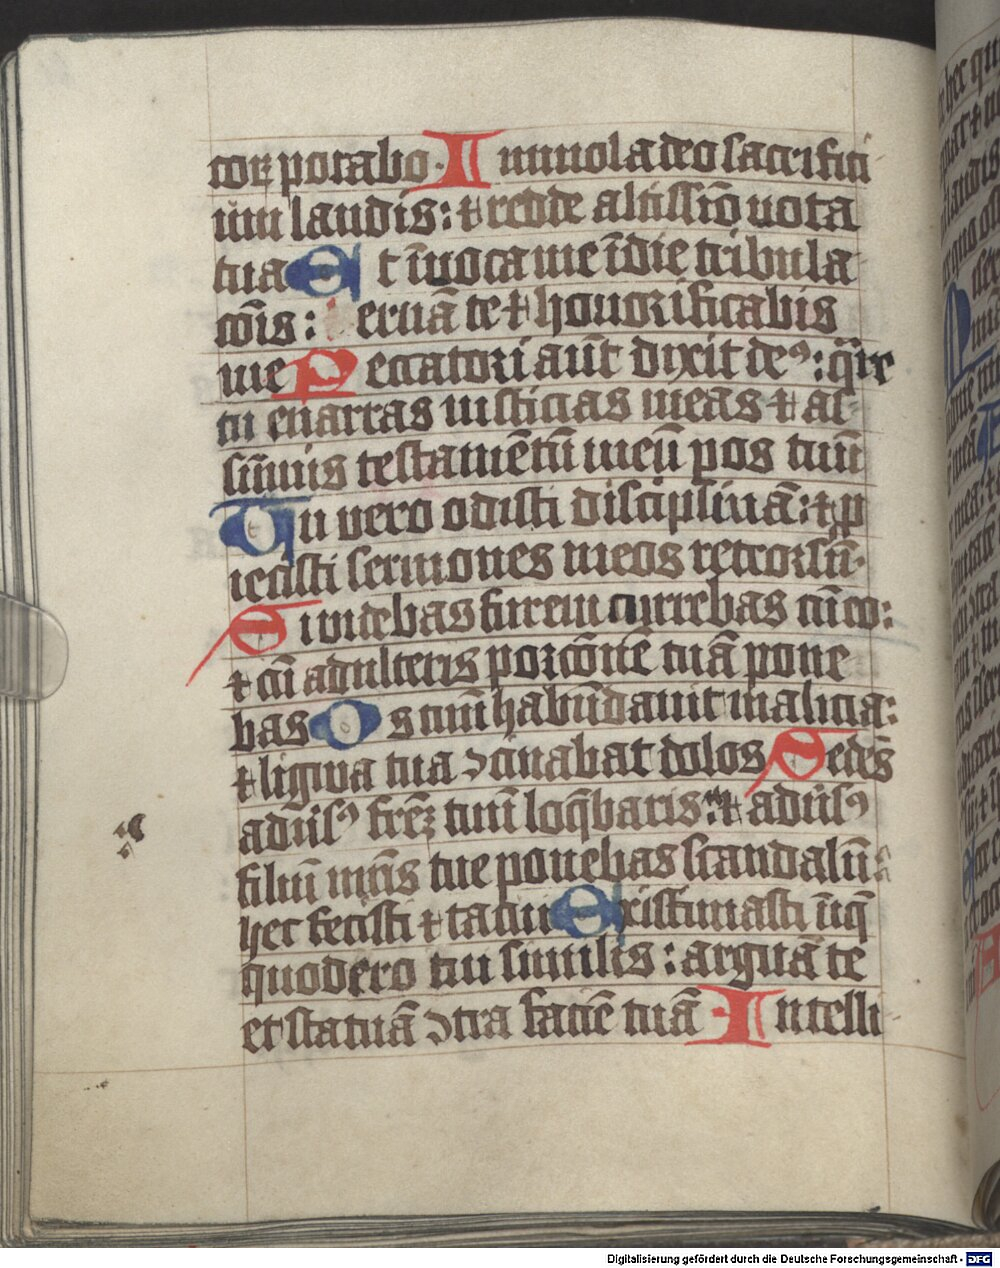 cor potabo. Inmola deo sacrifici
um laudis: ⁊ redde altissīo uota
tua Et īuoca me ī die tribula
cōis: eruā te ⁊ honorificabis
me Peccatori aūt dixit deꝰ: q̄re
tu enarras iusticias meas ⁊ as
sūmis testamētū meū p os tuū
Tu vero odisti disciplinā: ⁊ p
iecisti sermones meos retrorsū
Si uidebas furem currebas cū eo:
⁊ cū adulteris porcōnē tuā pone
bas Os tuū habūdauit malicia:
⁊ ligwa tua ↄcinabat dolos Sedēs
aduersꝰ frēꝫ tuū loq̄baris: ⁊ aduersꝰ
filiū mr̄is tue ponebas scandalū
hec fecisti ⁊ tacui Existimasti īiq̄
quod ero tui similis: arguā te
et statuā ↄtra faciē tuā Intelli
Digitalisierung gefördert durch die Deutsche Forschungsgemeinschaft - DFG